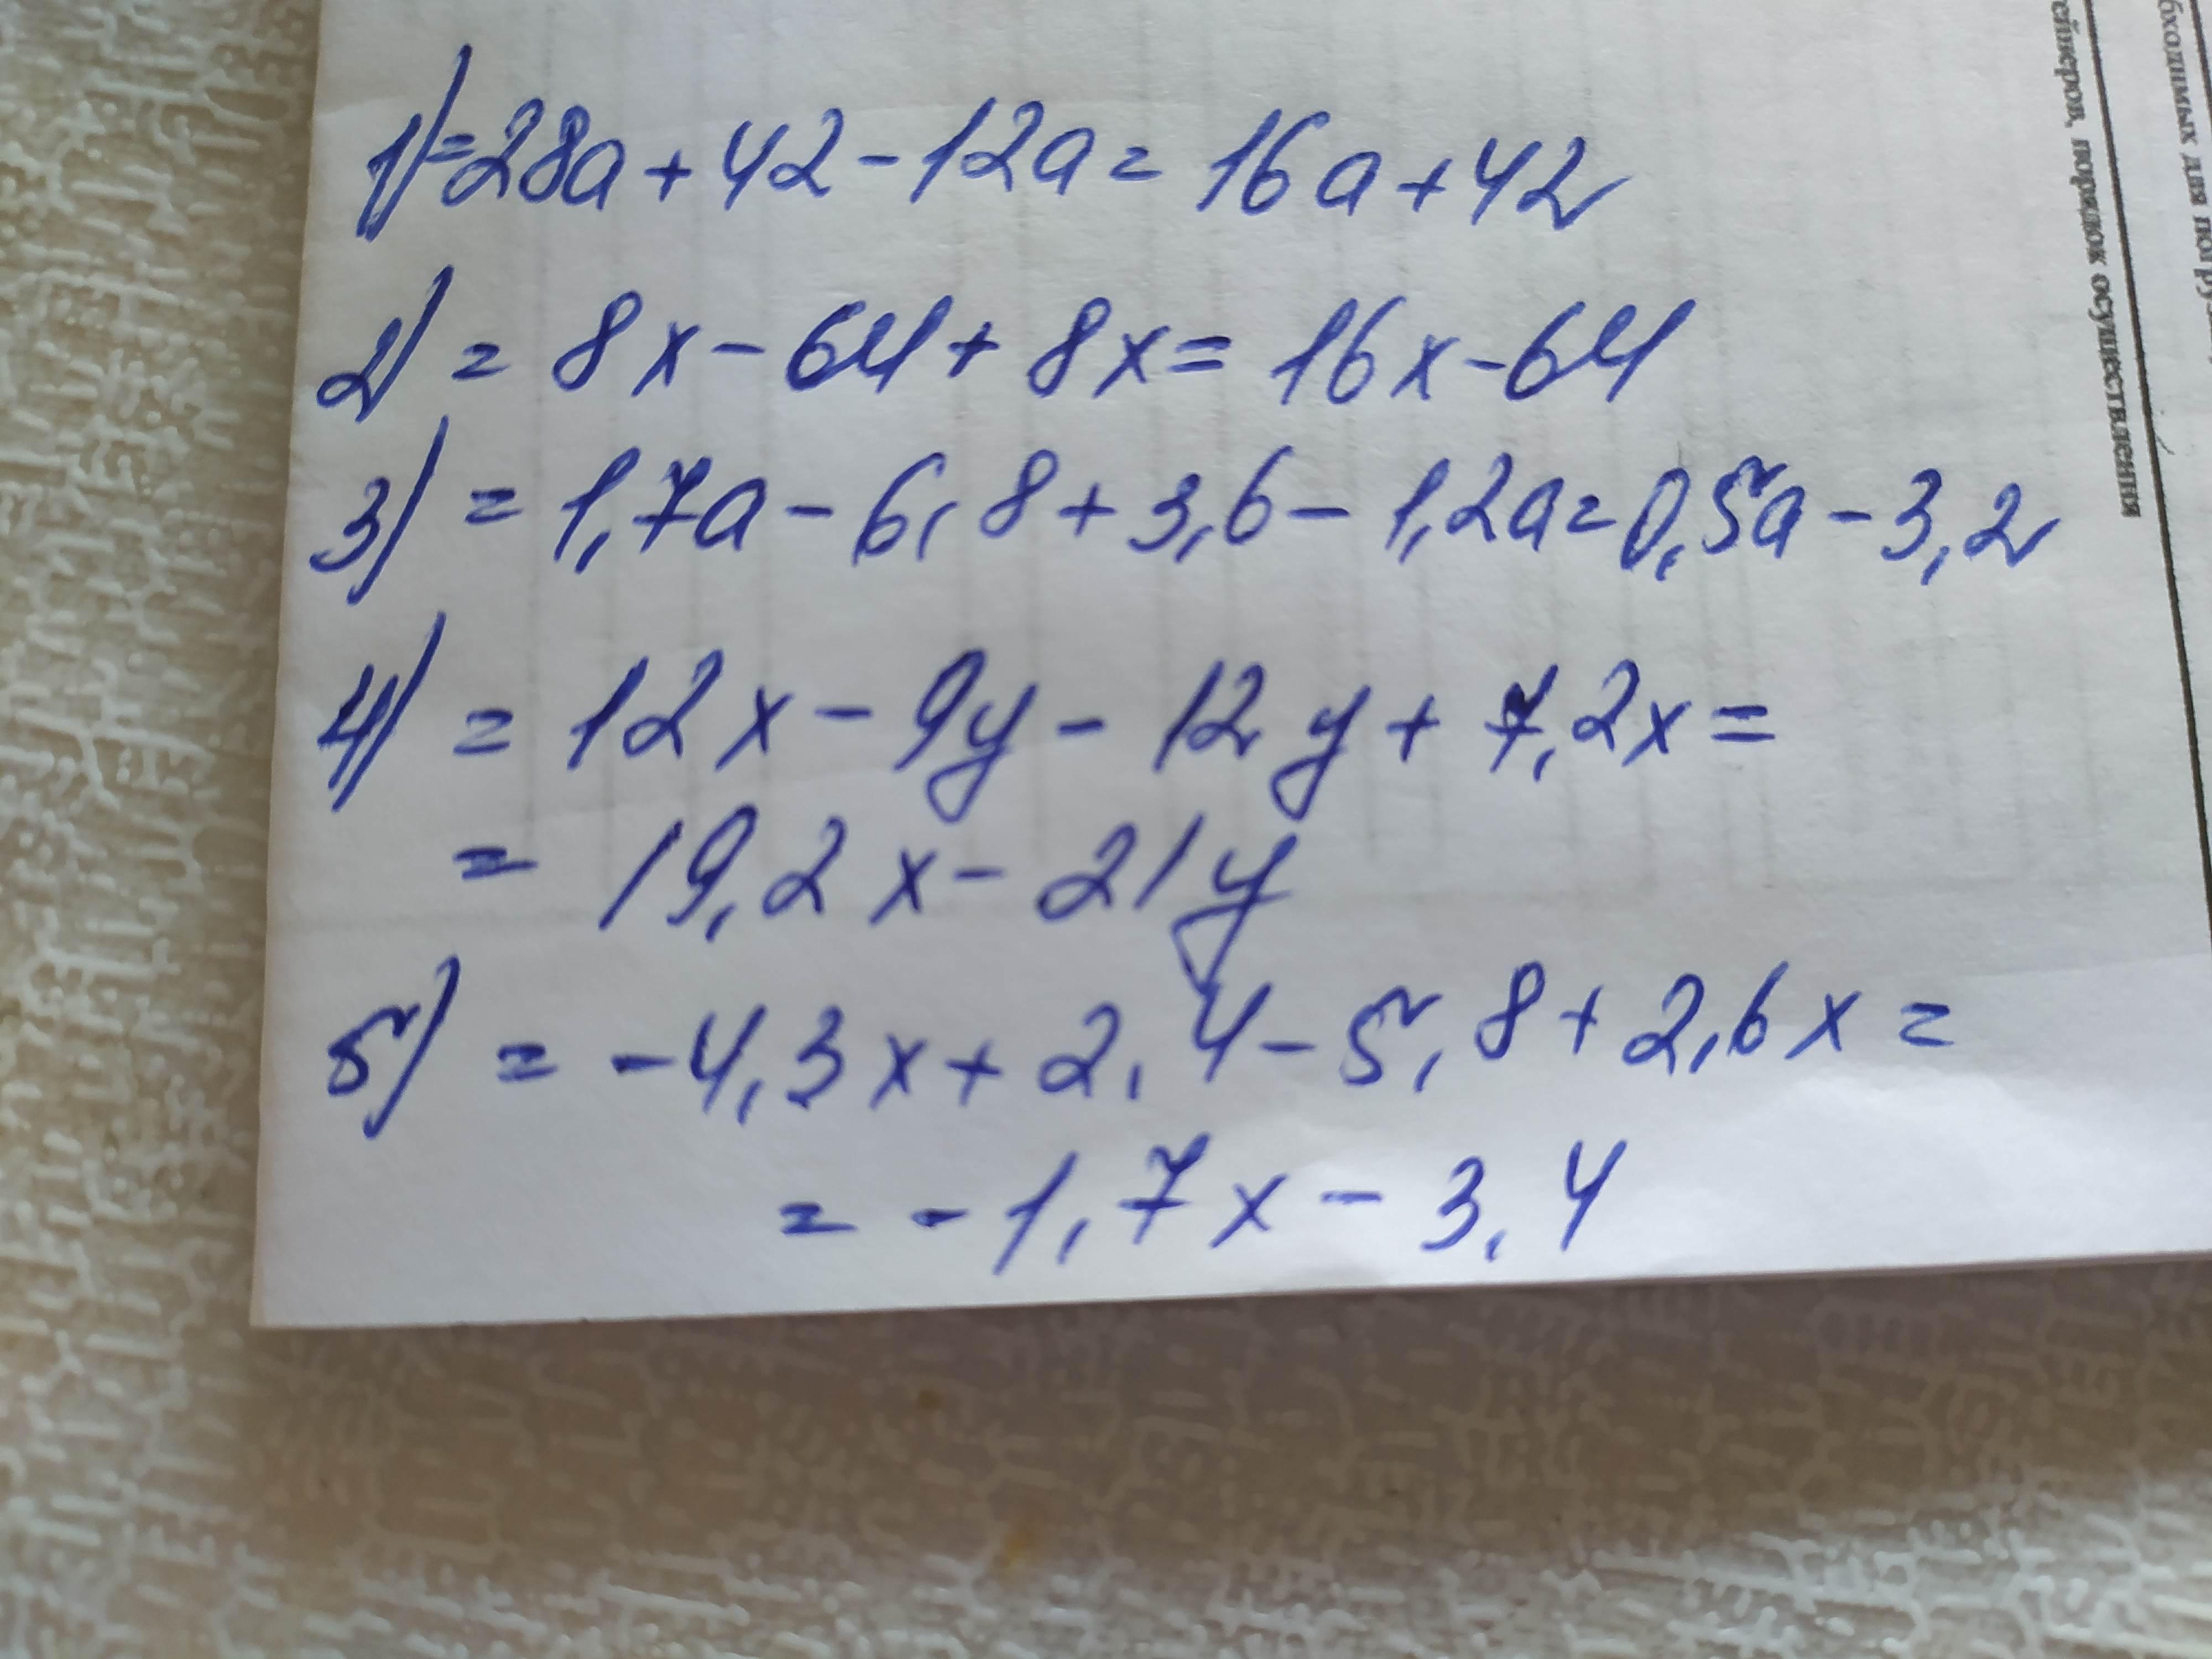 1) = 28a + 42 - 12a = 16a + 42
2) = 8x - 64 + 8x = 16x - 64
3) = 1,7a - 6,8 + 3,6 - 1,2a = 0,5a - 3,2
4) = 12x - 9y - 12y + 7,2x =
= 19,2x - 21y
5) = -4,3x + 2,4 - 5,8 + 2,6x =
= -1,7x - 3,4
ейнеров, порядок осуществления
бходимых для погру